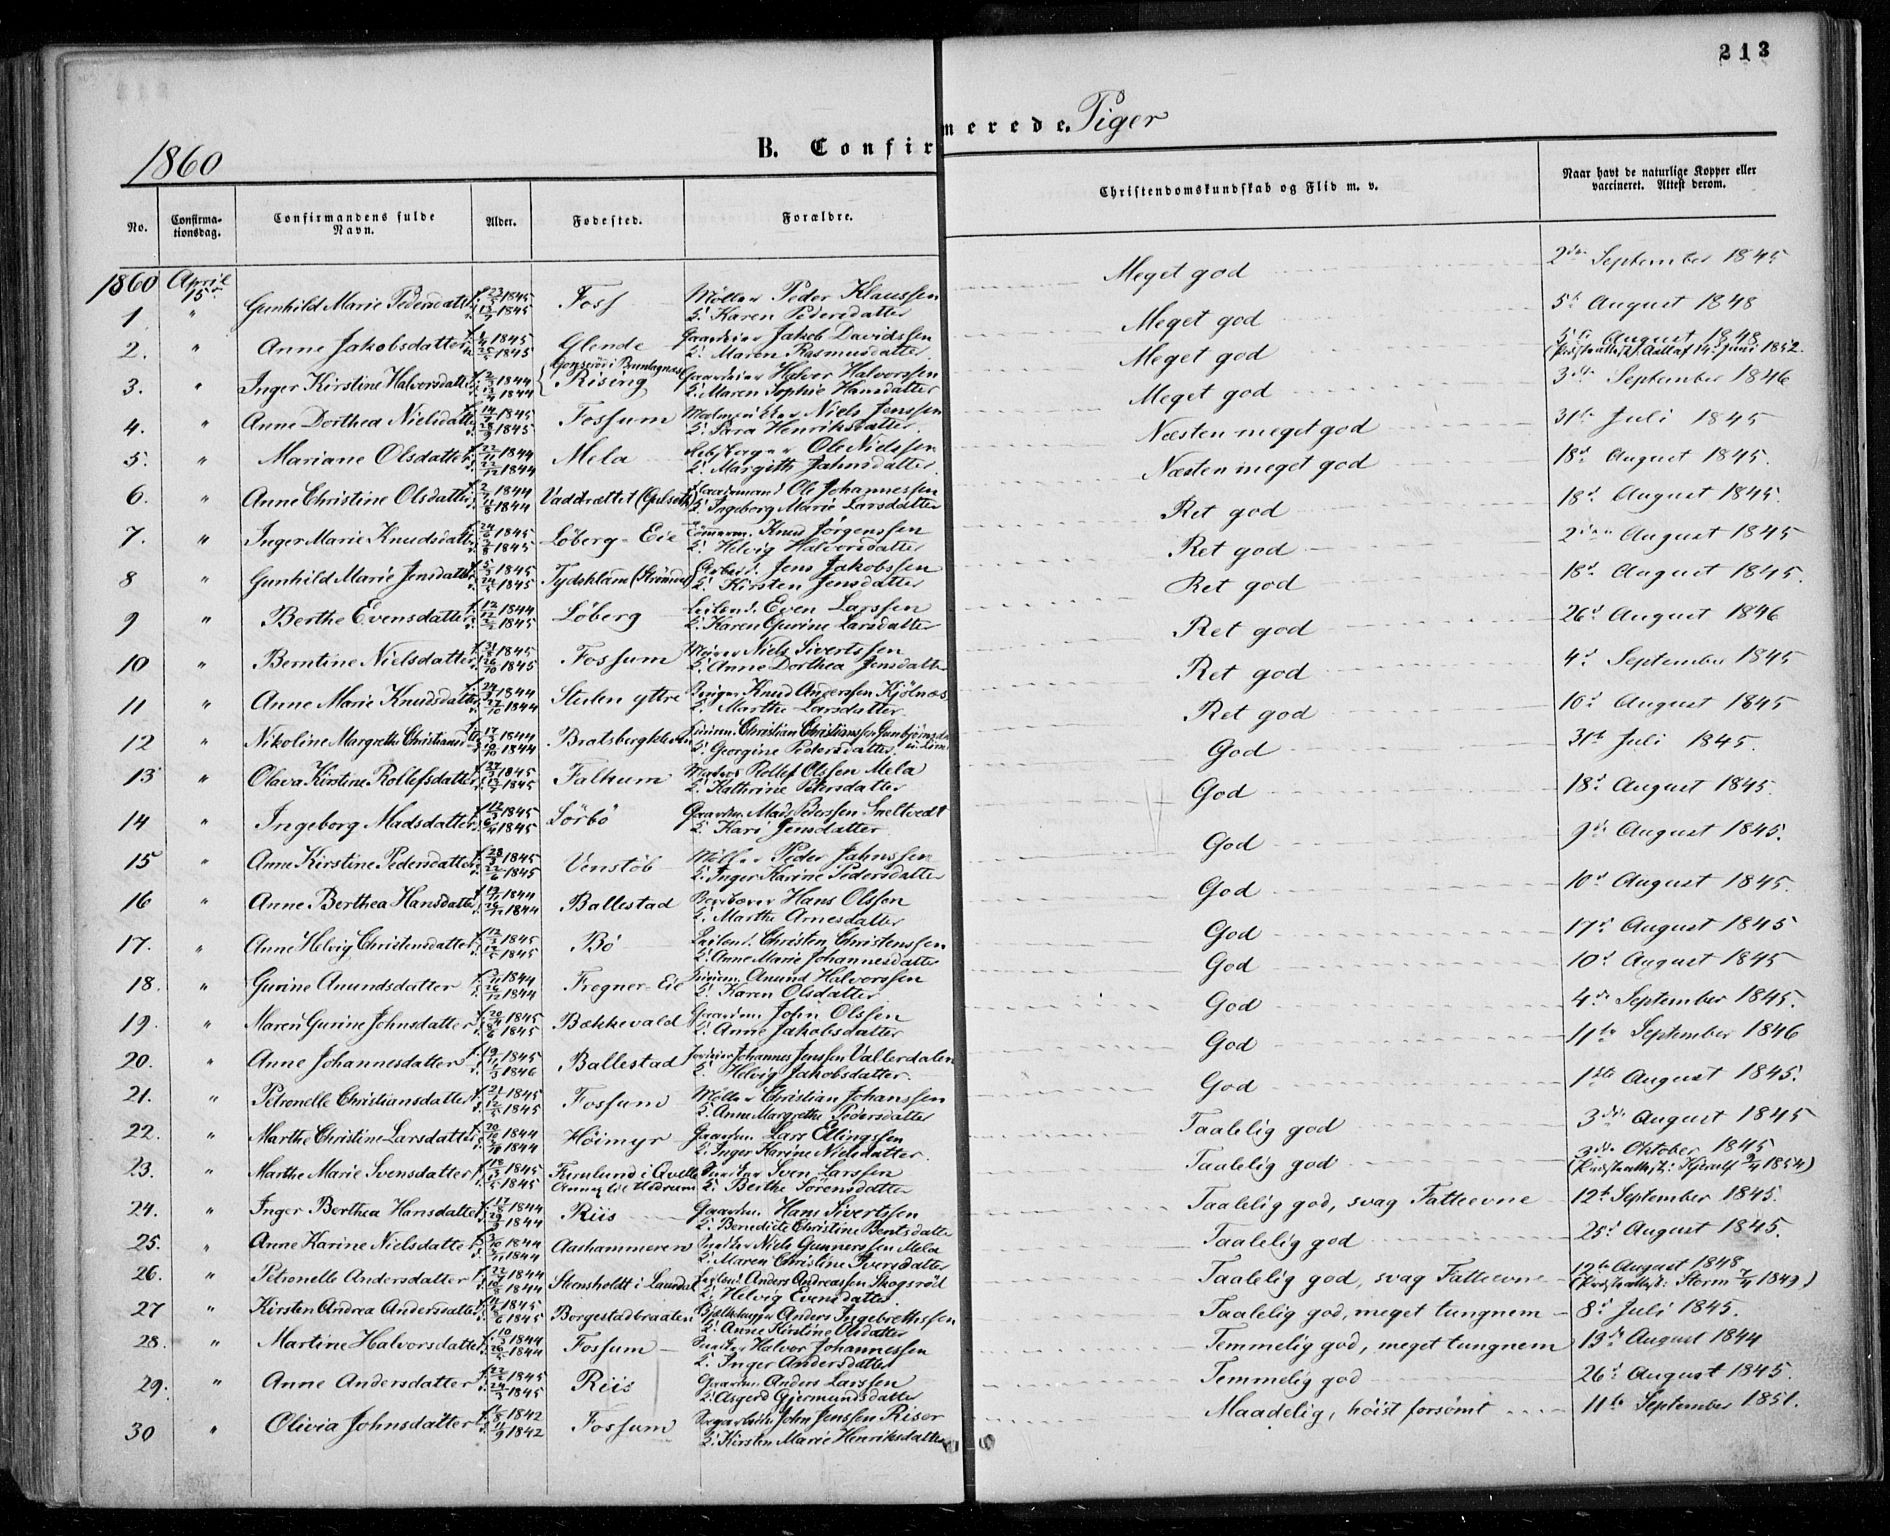 213
B. Confirmerede Piger
1860
No. Confirmationsdag. Confirmandens fulde Navn. Alder. Fødested. Forældre. Christendomskundskab og Flid m. v. Naar havt de naturlige Kopper eller vaccineret. Attest derom.
1860 April 15de
1 " Gunhild Marie Pedersdatter 1845 1845 Foss Møller Peder Klaussen K. Karen Pedersdatter Meget god 2den September 1845
2. " Anne Jakobsdatter 1845 1845 Glende Gaardeier Jakob Davidssen K. Maren Rasmusdatter Meget god 5te August 1848
3. " Inger Kirstine Halvorsdatter 1844 1844 i Brunlagnæs Rising Gaardeier Halvor Halvorssen K. Maren Sophie Hansdatter Meget god 5te August 1848 14 Juni 1852.
4. " Anne Dorthea Nielsdatter 1845 1845 Fossum Niels Jenssen K. Sara Henriksdatter Meget god 3die September 1846
5. " Mariane Olsdatter 1844 1844 Mela Ole Nielssen K. Margith Jahnsdatter Næsten meget god 31te Juli 1845
6. " Anne Christine Olsdatter 1844 1844 Vaddrættet (Gulseth) Ole Johannessen K. Ingeborg Marie Larsdatter Næsten meget god 18de August 1845.
7. " Inger Marie Knudsdatter 1845 1845 Löberg-Eie Tömmerm. Knud Jörgenssen K. Helvig Halvorsdatter Ret god 18de August 1845.
8 " Gunhild Marie Jensdatter 1845 1845 Tydsklam Jens Jakobssen K. Kirsten Jensdatter Ret god 2den August 1845
9 " Berthe Evensdatter 1844 1845 Löberg Leilend. Even Larssen K. Karen Gurine Larsdatter Ret god 18de August 1845.
10 " Berntine Nielsdatter 1845 1845 Fossum Niels Sivertssen K. Anne Dorthea Jensdatter Ret god 26de August 1846
11 " Anne Marie Knudsdatter 1844 1844 Stulen yttre Knud Anderssen Kjölnæs K. Marthe Larsdatter Ret god 4de September 1845
12 " Nikoline Margrethe Christiansd. 1844 1844 Bratsbergkleven Christian Christianssen K. Georgine Pedersdatter Ret god 10de August 1845
13 " Olava Kirstine Rollefsdatter 1845 1845 Falkum Rollef Olssen Mela K. Kathrine Petersdatter God 31te Juli 1845.
14 " Ingeborg Madsdatter 1845 1845 Sörbö Gaardm. Mads Pederssen Sneltvedt K. Kari Jensdatter God 18de August 1845.
15 " Anne Kirstine Pedersdatter 1845 1845 Venstöb Møller Peder Jahnssen K. Inger Karine Pedersdatter God 9de August 1845.
16 " Anne Berthea Hansdatter 1844 1844 Ballestad Hans Olssen K. Marthe Arnesdatter God 10de August 1845.
17. " Anne Helvig Christensdatter 1845 1845 Bö Leilend. Christen Christenssen K. Anne Marie Johannesdatter God 17de August 1845
18. " Gurine Anundsdatter 1844 1844 Frogner-Eie Anund Halvorssen K. Karen Olsdatter God 10de August 1845
19. " Maren Gurine Johnsdatter 1845 1845 Bækkevald Gaardm. John Olssen K. Anne Jakobsdatter God 4de September 1845.
20. " Anne Johannesdatter 1845 1846 Ballestad Johannes Jenssen Vallerdalen K. Helvig Jakobsdatter. God 11te September 1846
21. " Petronelle Christiansdatter 1845 1845 Fossum Møller Christian Johanssen K. Anne Margrethe Pedersdatter God 1ste August 1845.
22. " Marthe Christine Larsdatter 1844 1844 Höimyr Gaardm. Lars Ellingssen K. Inger Karine Nielsdatter. Taalelig god 3die August 1845
23. " Marthe Marie Svensdatter 1845 1845 Furulund i Sven Larssen K. Berthe Sörensdatter Taalelig god 3die Oktober 1845 1854)
24. " Inger Berthea Hansdatter 1844 1844 Riis Gaardm. Hans Sivertssen K. Benedicte Christine Bentsdatter Taalelig god, svag Fatteevne 12te September 1845.
25. " Anne Karine Nielsdatter 1844 1844 Aashammeren Niels Gunnerssen Mela K. Maren Christine Iversdatter Taalelig god 25de August 1845.
26. " Petronelle Andersdatter 1844 1844 Stensholdt i Laurdal Leilend. Anders Andreassen Skogsröd K. Helvig Evensdatter. Taalelig god, svag Fatteevne 12te August 1848 Storm 1849)
27 " Kirsten Andrea Andersdatter 1845 1845 Borgestadbraaten Anders Ingebrethssen K. Anne Kirstine Olsdatter Taalelig god, meget tungnem 8de Juli 1845.
28. " Martine Halvorsdatter 1844 1844 Fossum Halvor Johannessen K. Inger Andersdatter Temmelig god, meget tungnem 13de August 1844
29. " Anne Andersdatter 1845 1845 Riis Gaardm. Anders Larssen K. Asgerd Gjermundsdatter Temmelig god 26de August 1845.
30 " Olivia Johnsdatter 1842 1842 Fossum John Jenssen Risør K. Kirsten Marie Henriksdatter Maadelig, höist forsömt 11te September 1851.